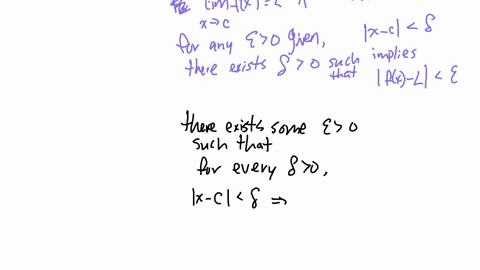 lim f(x)=L
x→c
for any ε>0 given, |x-c|<δ
there exists δ>0 such that implies |f(x)-L|<ε
there exists some ε>0
such that
for every δ>0,
|x-c|<δ ⇒